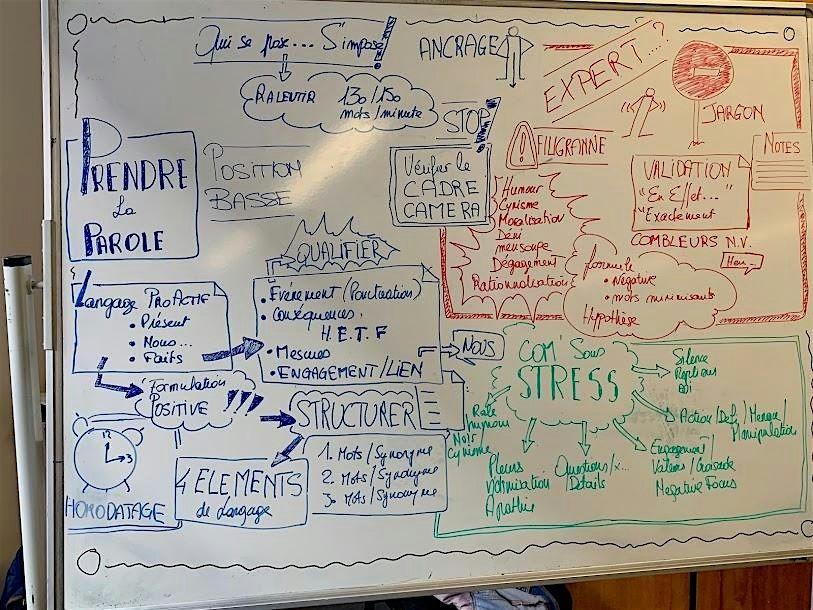 Qui se pose... S'impose!
RALENTIR 130/150
mots/minute
ANCRAGE
EXPERT...?
JARGON
NOTES
STOP!
PRENDRE
La
PAROLE
POSITION
BASSE
Vérifier le
CADRE
CAMERA
! FILIGRANNE
Humour
Cynisme
Moralisation
Déni
mensonge
Dégagement
Rationnalisation
VALIDATION
"En Effet..."
"Exactement
COMBLEURS N.V.
formule
• Négative
• mots minimisants
Hypothèse
QUALIFIER
• Evénement (Ponctuation)
• Conséquences
H.E.T.F
• Mesures
• ENGAGEMENT/LIEN
NOUS
Langage PROACTIF
• Présent
• Nous...
• Faits
Formulation
POSITIVE !!!
STRUCTURER
12
3
HORODATAGE
4 ELEMENTS
de Langage
1. Mots/Synonyme
2. Mots/Synonyme
3. Mots/Synonyme
COM' Sous
STRESS
Silence
Action/Défi/Menace/
Manipulation
Engagement/
Valeurs/Croisade
Negative Focus
Questions/x...
Détails
Pleurs
Victimisation
Apathie
Cynisme